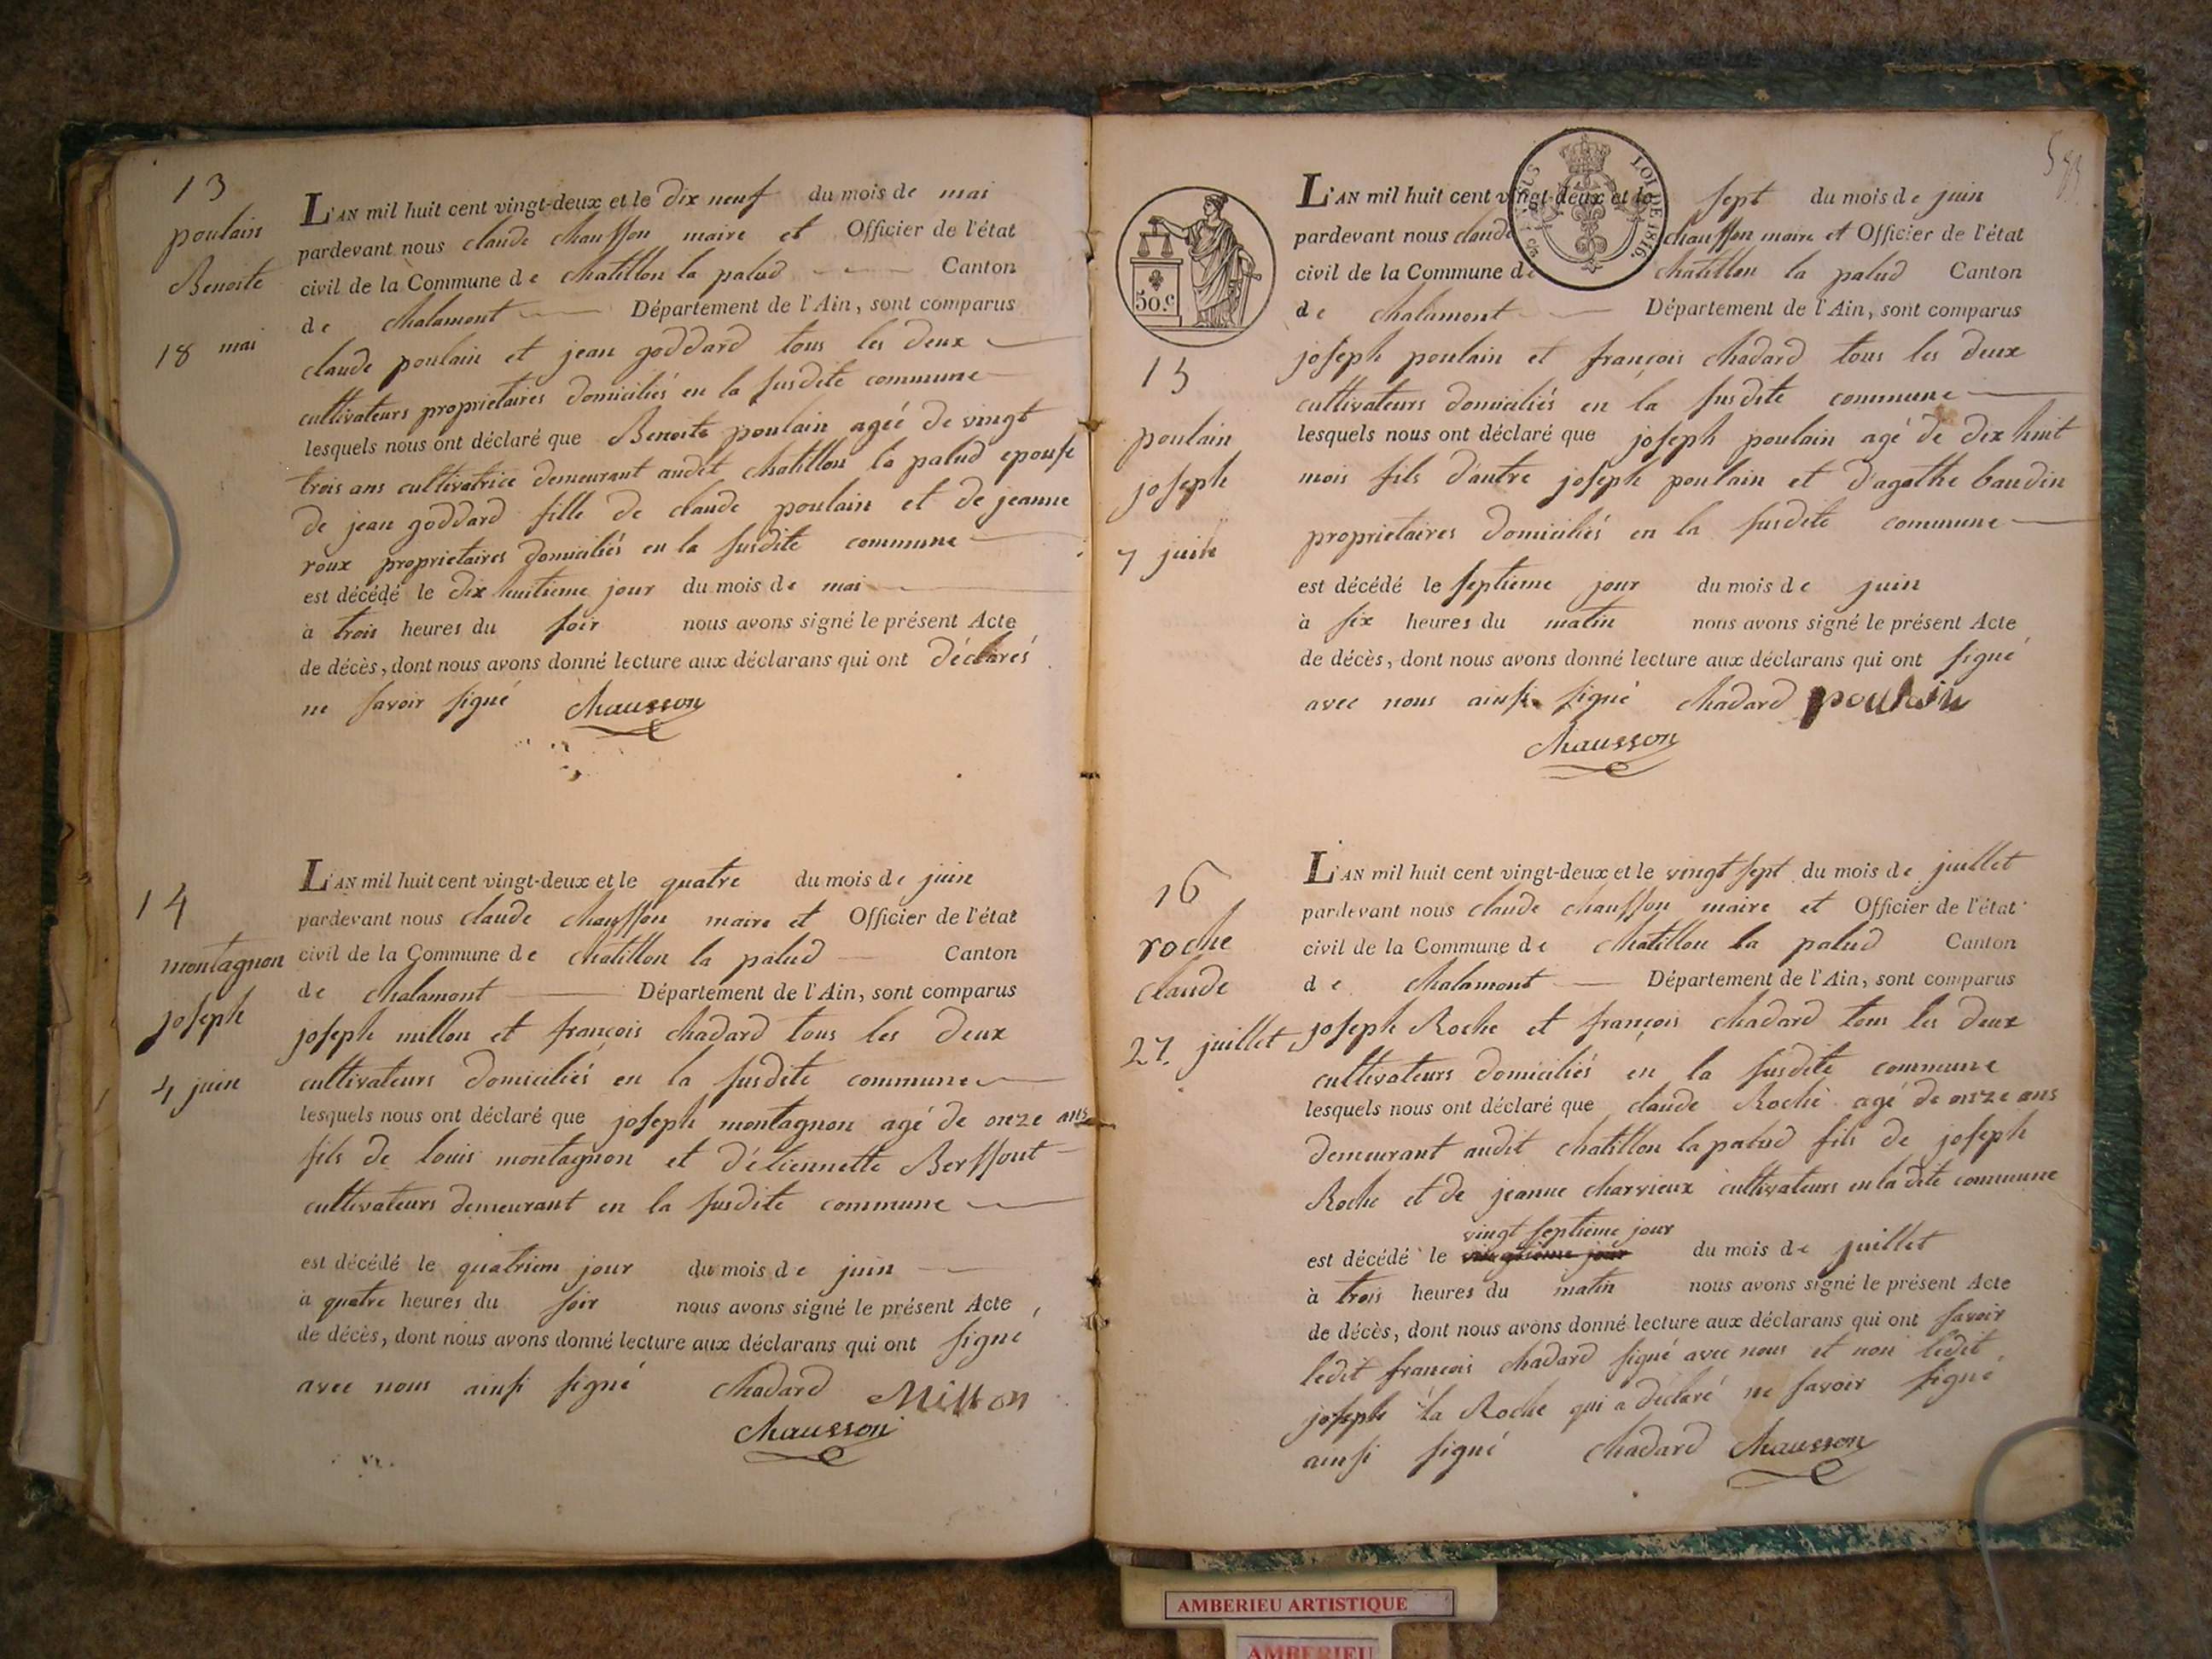 13
poulain
Benoite
18 mai
L'AN mil huit cent vingt-deux et le dix neuf du mois de mai
pardevant nous claude chausson maire et Officier de l'état
civil de la Commune de chatillon la palud Canton
de chalamont Département de l'Ain, sont comparus
claude poulain et jean goddard tous les deux
cultivateurs proprietaires domiciliés en la susdite commune
lesquels nous ont déclaré que Benoite poulain agée de vingt
trois ans cultivatrice demeurant audit chatillon la palud epouse
de jean goddard fille de claude poulain et de jeanne
roux proprietaires domiciliés en la susdite commune
est décédé le dix huitieme jour du mois de mai
à trois heures du soir nous avons signé le présent Acte
de décès, dont nous avons donné lecture aux déclarans qui ont déclarés
ne savoir signé chausson
14
montagnon
joseph
4 juin
L'AN mil huit cent vingt-deux et le quatre du mois de juin
pardevant nous claude chausson maire et Officier de l'état
civil de la Commune de chatillon la palud Canton
de chalamont Département de l'Ain, sont comparus
joseph millon et françois chadard tous les deux
cultivateurs domiciliés en la susdite commune
lesquels nous ont déclaré que joseph montagnon agé de onze ans
fils de louis montagnon et d'étiennette
cultivateurs demeurant en la susdite commune
est décédé le quatriem jour du mois de juin
à quatre heures du soir nous avons signé le présent Acte
de décès, dont nous avons donné lecture aux déclarans qui ont signé
avec nous ainsi signé chadard Millon
chausson
LOI DE 1816.
50.c
15
poulain
joseph
7 juin
L'AN mil huit cent vingt-deux et le sept du mois de juin
pardevant nous claude chausson maire et Officier de l'état
civil de la Commune de chatillon la palud Canton
de chalamont Département de l'Ain, sont comparus
joseph poulain et françois chadard tous les deux
cultivateurs domiciliés en la susdite commune
lesquels nous ont déclaré que joseph poulain agé de dix huit
mois fils d'autre joseph poulain et d'agathe baudin
proprietaires domiciliés en la susdite commune
est décédé le septieme jour du mois de juin
à six heures du matin nous avons signé le présent Acte
de décès, dont nous avons donné lecture aux déclarans qui ont signé
avec nous ainsi signé chadard poulain
chausson
16
roche
claude
27 juillet
L'AN mil huit cent vingt-deux et le vingt sept du mois de juillet
pardevant nous claude chausson maire et Officier de l'état
civil de la Commune de chatillon la palud Canton
de chalamont Département de l'Ain, sont comparus
joseph Roche et françois chadard tous les deux
cultivateurs domiciliés en la susdite commune
lesquels nous ont déclaré que claude Roche agé de onze ans
demeurant audit chatillon la palud fils de joseph
Roche et de jeanne charvieux cultivateurs en la dite commune
vingt septieme jour
est décédé le vingtieme jour du mois de juillet
à trois heures du matin nous avons signé le présent Acte
de décès, dont nous avons donné lecture aux déclarans qui ont savoir
ledit françois chadard signé avec nous et non ledit
joseph la Roche qui a déclaré ne savoir signé
ainsi signé chadard chausson
AMBERIEU ARTISTIQUE
AMBERIEU